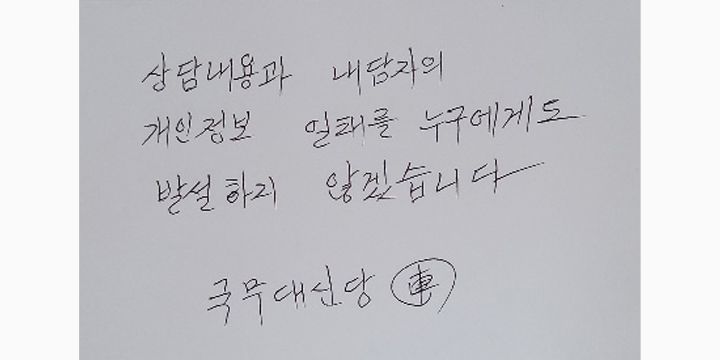 상담내용과 내담자의
개인정보 일체를 누구에게도
발설하지 않겠습니다
국무대신당 車